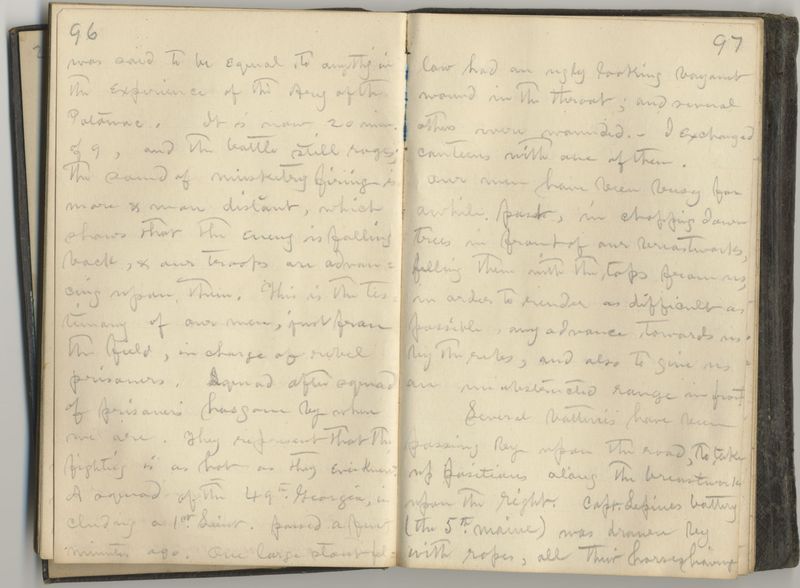 96
was said to be equal to anything in
the experience of the Army of the
Potomac. It is now 20 min.
of 9, and the battle still rages;
the sound of musketry firing is
more & more distant, which
shows that the enemy is falling
back, & our troops are advan=
cing upon them. This is the tes-
timony of our men, just from
the field, in charge of rebel
prisoners. Squad after squad
of prisoners has gone by where
we are. They represent that the
fighting is as hot as they ever knew.
A squad of the 49th Georgia, in
cluding a 1st Lieut. passed a few
minutes ago. One large stout fel
97
low had an ugly looking bayonet
wound in the throat; and several
others were wounded. - I exchanged
canteens with one of them.
Our men have been busy for
awhile past, in chopping down
trees in front of our breastworks,
falling them with the tops from us,
in order to render as difficult as
possible, any advance towards us
by the rebs, and also to give us
an unobstructed range in front.
Several batteries have been
passing by upon the road, to take
up positions along the breastwork
upon the right. Capt. battery
(the 5th Maine) was drawn by
with ropes, all their horses having